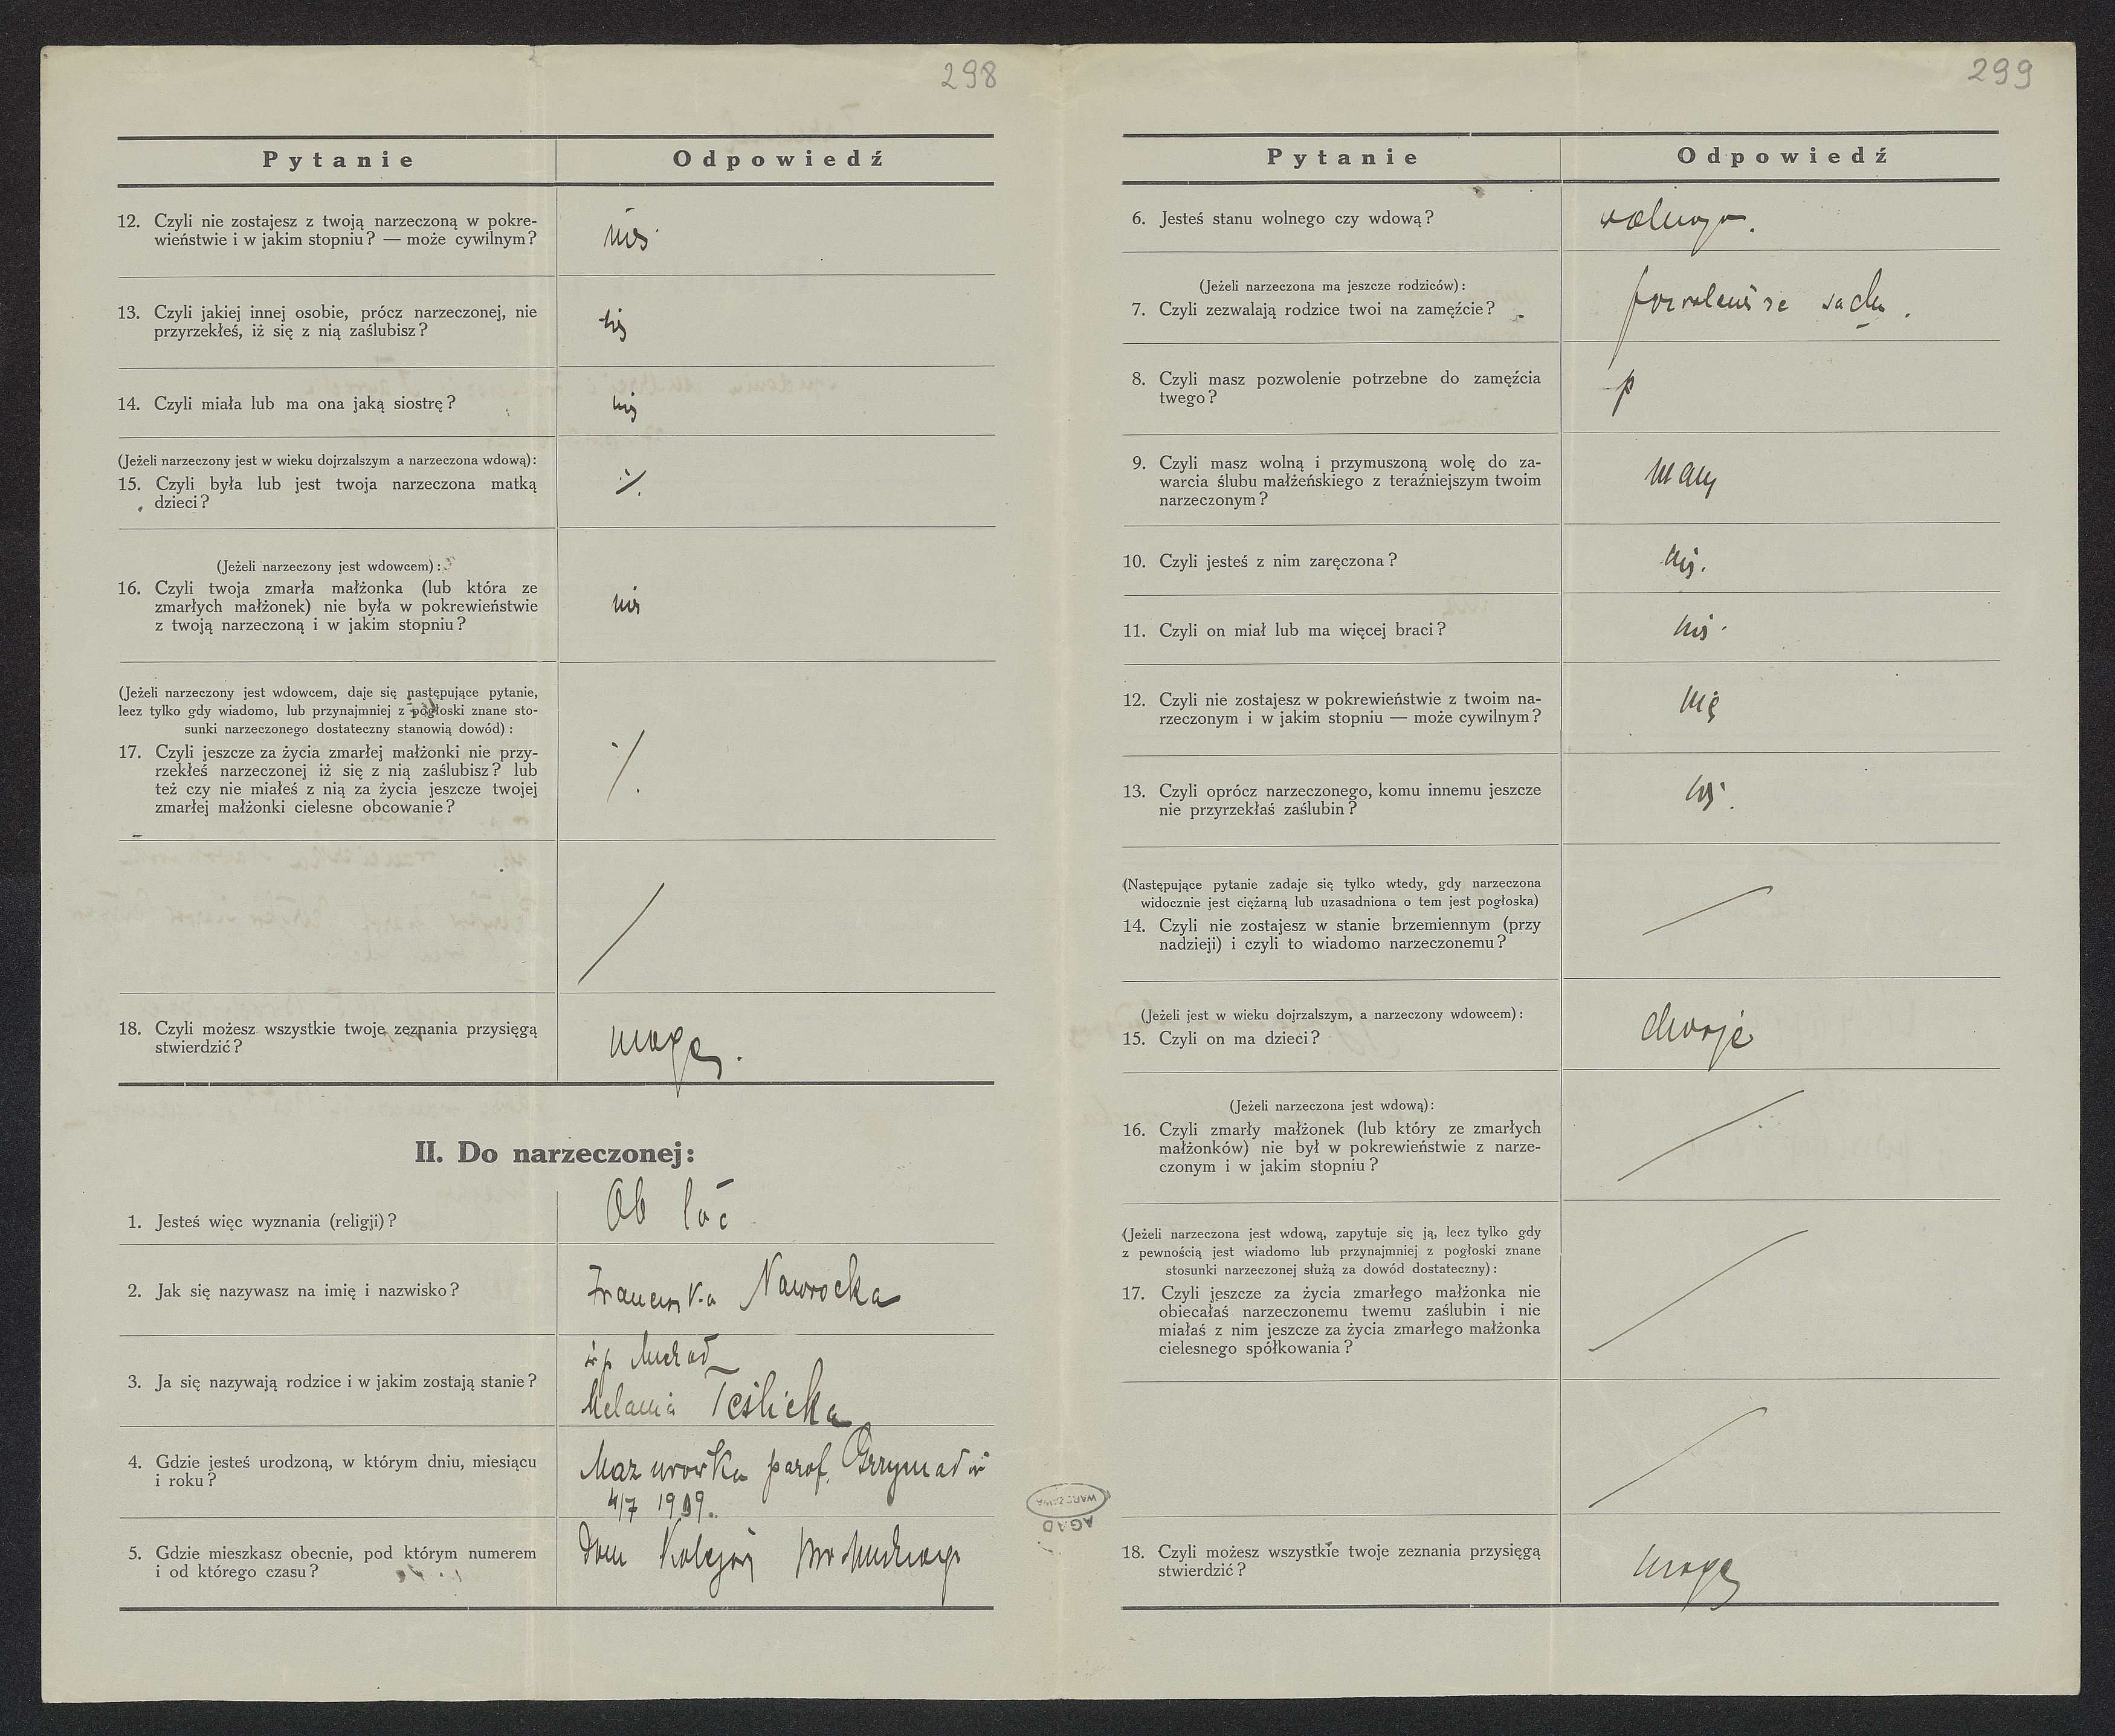 298
Pytanie Odpowiedź
12. Czyli nie zostajesz z twoją narzeczoną w pokre-
wieństwie i w jakim stopniu? — może cywilnym?
nie
13. Czyli jakiej innej osobie, prócz narzeczonej, nie
przyrzekłeś, iż się z nią zaślubisz?
nie
14. Czyli miała lub ma ona jaką siostrę?
nie
(Jeżeli narzeczony jest w wieku dojrzalszym a narzeczona wdową):
15. Czyli była lub jest twoja narzeczona matką
dzieci?
./.
(Jeżeli narzeczony jest wdowcem):
16. Czyli twoja zmarła małżonka (lub która ze
zmarłych małżonek) nie była w pokrewieństwie
z twoją narzeczoną i w jakim stopniu?
nie
(Jeżeli narzeczony jest wdowcem, daje się następujące pytanie,
lecz tylko gdy wiadomo, lub przynajmniej z pogłoski znane sto-
sunki narzeczonego dostateczny stanowią dowód):
17. Czyli jeszcze za życia zmarłej małżonki nie przy-
rzekłeś narzeczonej iż się z nią zaślubisz? lub
też czy nie miałeś z nią za życia jeszcze twojej
zmarłej małżonki cielesne obcowanie?
./.
18. Czyli możesz wszystkie twoje zeznania przysięgą
stwierdzić?
mogę.
II. Do narzeczonej:
1. Jesteś więc wyznania (religji)?
Ob łać
2. Jak się nazywasz na imię i nazwisko?
Franciszka Nawrocka
3. Ja się nazywają rodzice i w jakim zostają stanie?
śp Michał
Melania Teślicka
4. Gdzie jesteś urodzoną, w którym dniu, miesiącu
i roku?
Mazurówka paraf.
4/7 1909.
5. Gdzie mieszkasz obecnie, pod którym numerem
i od którego czasu?
Dom
299
Pytanie Odpowiedź
6. Jesteś stanu wolnego czy wdową?
wolnego.
(Jeżeli narzeczona ma jeszcze rodziców):
7. Czyli zezwalają rodzice twoi na zamęźcie?
sądu.
8. Czyli masz pozwolenie potrzebne do zamęźcia
twego?
9. Czyli masz wolną i przymuszoną wolę do za-
warcia ślubu małżeńskiego z teraźniejszym twoim
narzeczonym?
mam
10. Czyli jesteś z nim zaręczona?
nie.
11. Czyli on miał lub ma więcej braci?
nie.
12. Czyli nie zostajesz w pokrewieństwie z twoim na-
rzeczonym i w jakim stopniu — może cywilnym?
nie
13. Czyli oprócz narzeczonego, komu innemu jeszcze
nie przyrzekłaś zaślubin?
nie.
(Następujące pytanie zadaje się tylko wtedy, gdy narzeczona
widocznie jest ciężarną lub uzasadniona o tem jest pogłoska)
14. Czyli nie zostajesz w stanie brzemiennym (przy
nadzieji) i czyli to wiadomo narzeczonemu?
(Jeżeli jest w wieku dojrzalszym, a narzeczony wdowcem):
15. Czyli on ma dzieci?
dwoje
(Jeżeli narzeczona jest wdową):
16. Czyli zmarły małżonek (lub który ze zmarłych
małżonków) nie był w pokrewieństwie z narze-
czonym i w jakim stopniu?
(Jeżeli narzeczona jest wdową, zapytuje się ją, lecz tylko gdy
z pewnością jest wiadomo lub przynajmniej z pogłoski znane
stosunki narzeczonej służą za dowód dostateczny):
17. Czyli jeszcze za życia zmarłego małżonka nie
obiecałaś narzeczonemu twemu zaślubin i nie
miałaś z nim jeszcze za życia zmarłego małżonka
cielesnego spółkowania?
18. Czyli możesz wszystkie twoje zeznania przysięgą
stwierdzić?
mogę
AGAD
WARSZAWA